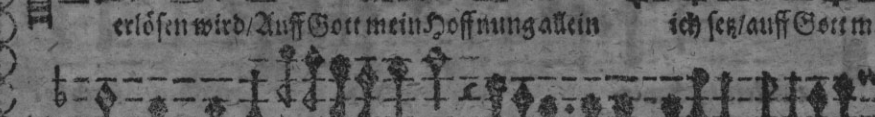 erlösen wird/Auff Gott mein Hoffnung allein ich setz/auff Gott m